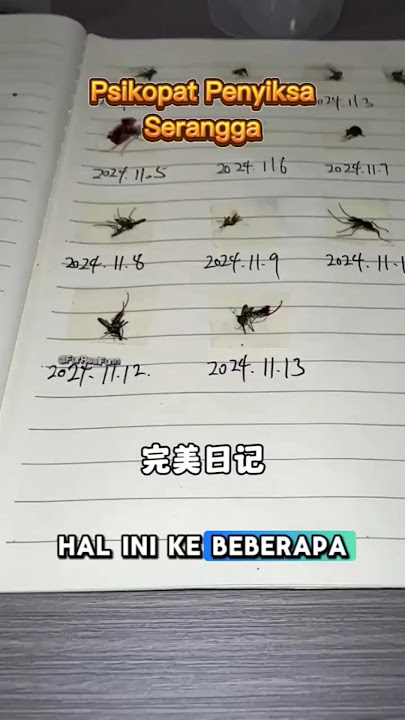 Psikopat Penyiksa
Serangga
2024.11.5
2024.11.6
2024.11.7
2024.11.8
2024.11.9
@FurHealFunn
2024.11.12.
2024.11.13
完美日记
HAL INI KE BEBERAPA